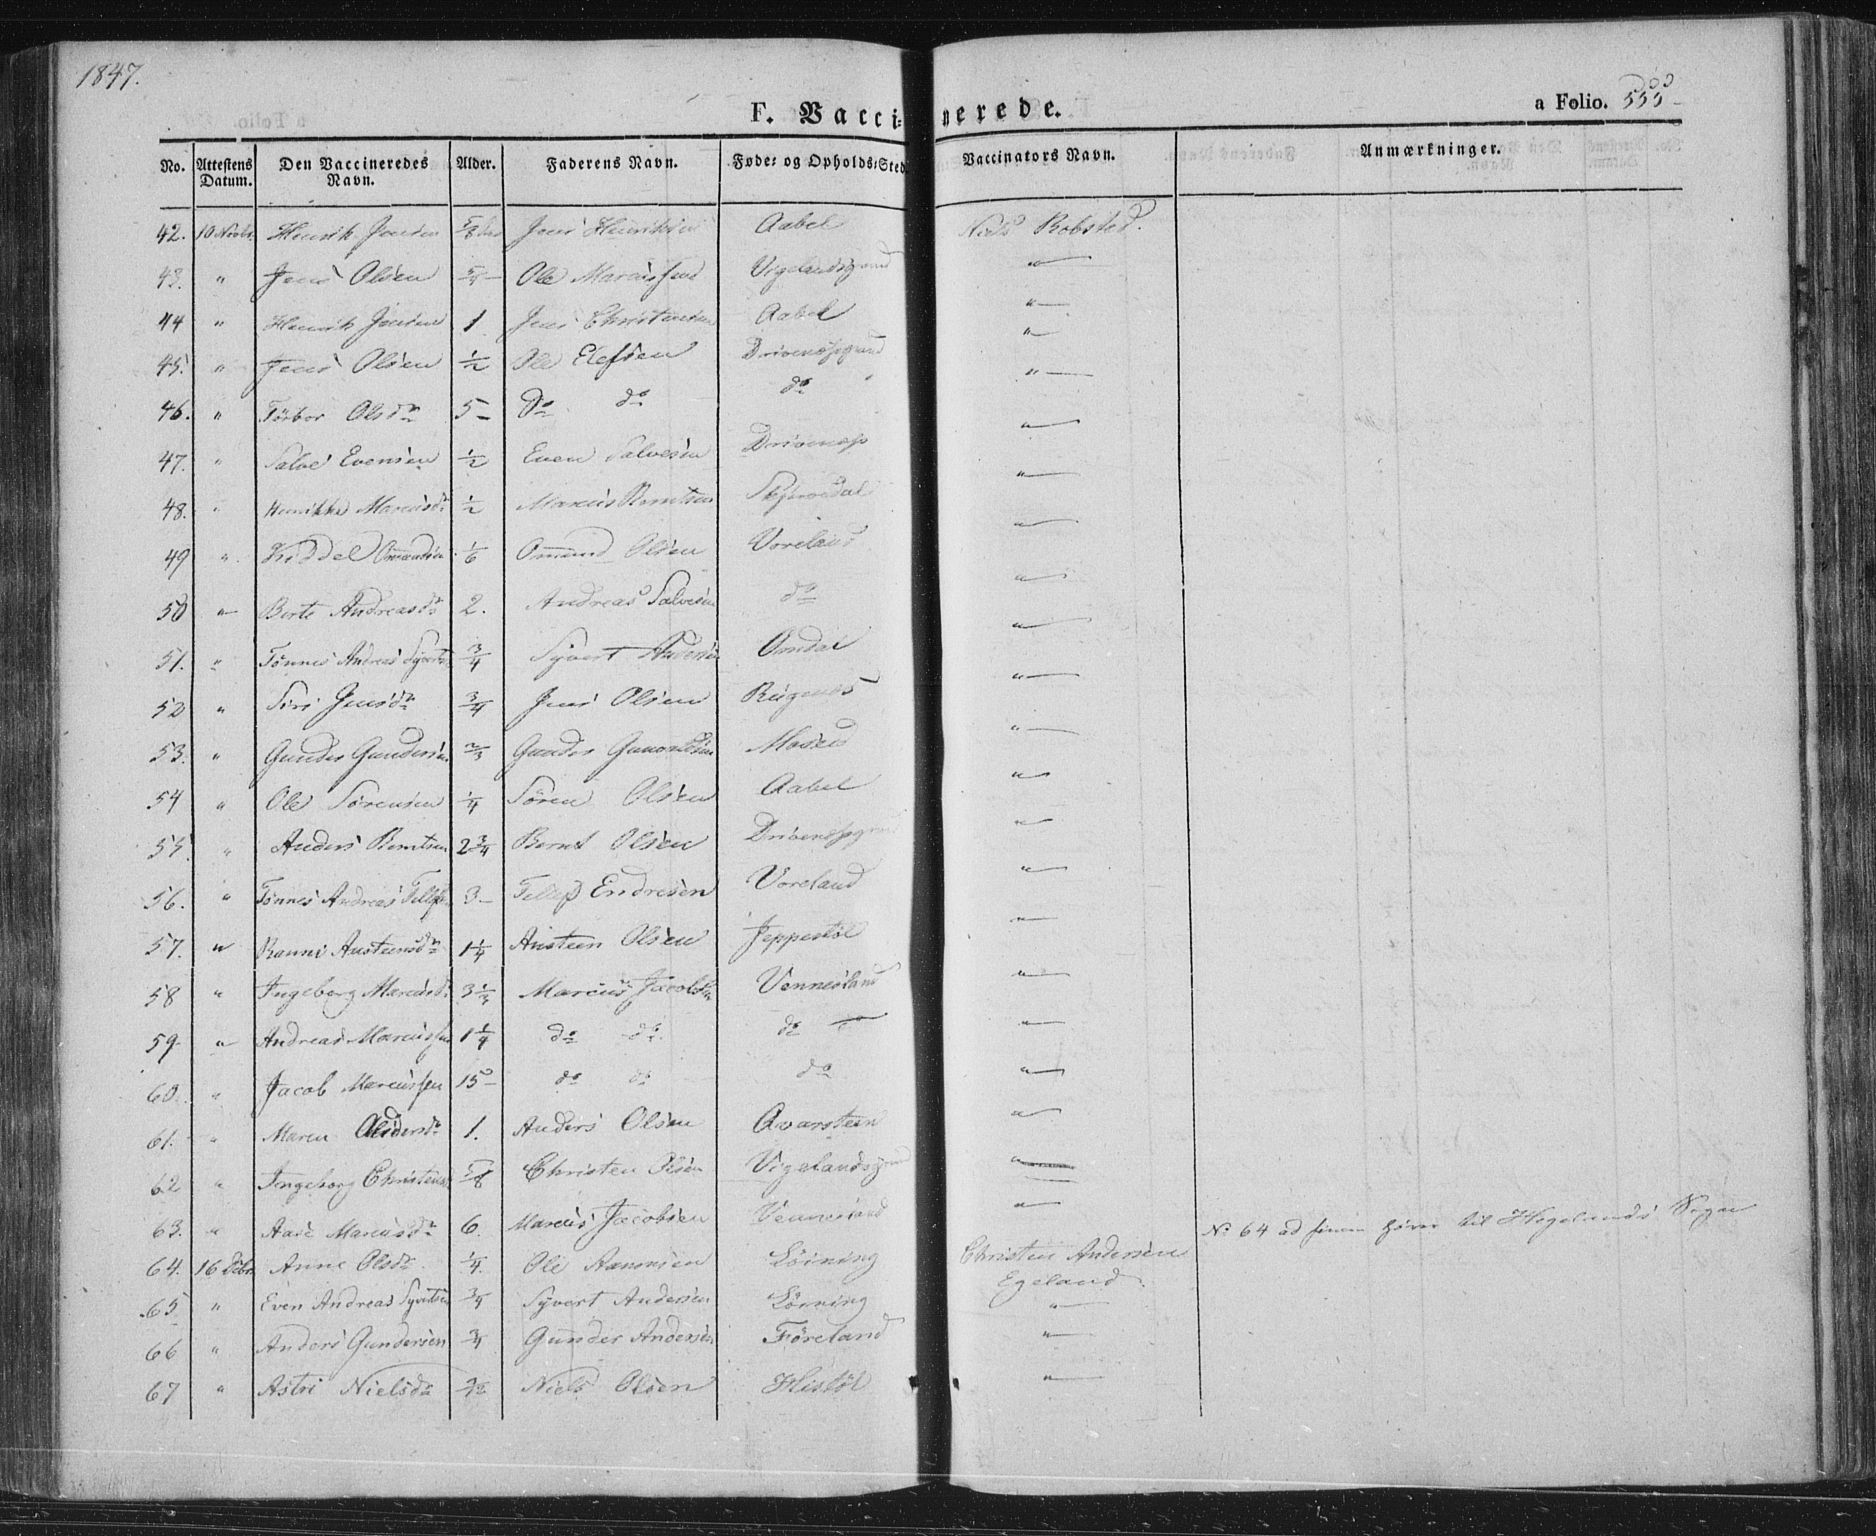 1847.
F. Vaccinerede.
a Folio. 555
No. Attestens Datum. Den Vaccineredes Navn. Alder. Faderens Navn. Føde- og Opholds-Sted Vaccinators Navn. Anmærkninger.
42. 10 Novbr Henrik Jensen 5/8 Jens Henriksen Aabel Niels Robstad.
43. " Jens Olsen Ole Marcussen Vigelandsgrund "
44 " Henrik Jensen 1 Jens Christensen Aabel "
45. " Jens Olsen 1/2 Ole Elefsen Drivenesgrund "
46. " Torbor Olsdr 5 Do do do "
47. " Salve Evensen 1/2 Even Salvesen Drivenes "
48. " Henrikke Marcusdr 1/2 Marcus Berntsen "
49 " Omundsen 1/6 Omund Olsen Voreland "
50 " Berte Andreasdr 2. Andreas Salvesen do "
51. " Tønnes Andreas Syverts 3/4 Syvert Andersen Omdal "
52 " Siri Jensdr 3/4 Jens Olsen Rugenes "
53. " Gunder Gundersen 2/3 Gunder Moseid "
54 " Ole Sørensen 1/4 Søren Olsen Aabel "
55. " Anders Berntsen 2 3/4 Bernt Olsen Drivenesgrund "
56. " Tønnes Andreas Tellefs 3 Tellef Endresen Voreland "
57. " Ranni Austensdr 1 1/4 Austeen Olsen Jeppestøl "
58 " Ingeborg Marcusdr 3 1/3 Marcus Jacobsen Vennesland "
59. " Andreas Marcussen 1 1/4 do do do "
60. " Jacob Marcussen 15 do do do "
61. " Maren Andersdr 1. Anders Olsen Avarsteen "
62 " Ingeborg Christensd 5/8 Christen Olsen Vigelandsgrund "
63. " Marcusdr 6. Marcus Jacobsen Vennesland "
No 64 ad finem hører til Hegelands Sogn
64. 16 Debr Anne Olsdr 1/4. Ole Aanonsen Lørning Christen Andersen Egeland.
65 " Even Andreas Syvertsen 3/4 Syvert Andersen Lørning "
66 " Anders Gundersen 3/4 Gunder Andersen Føreland "
67 " Astri Nielsdr Niels Olsen Histøl "